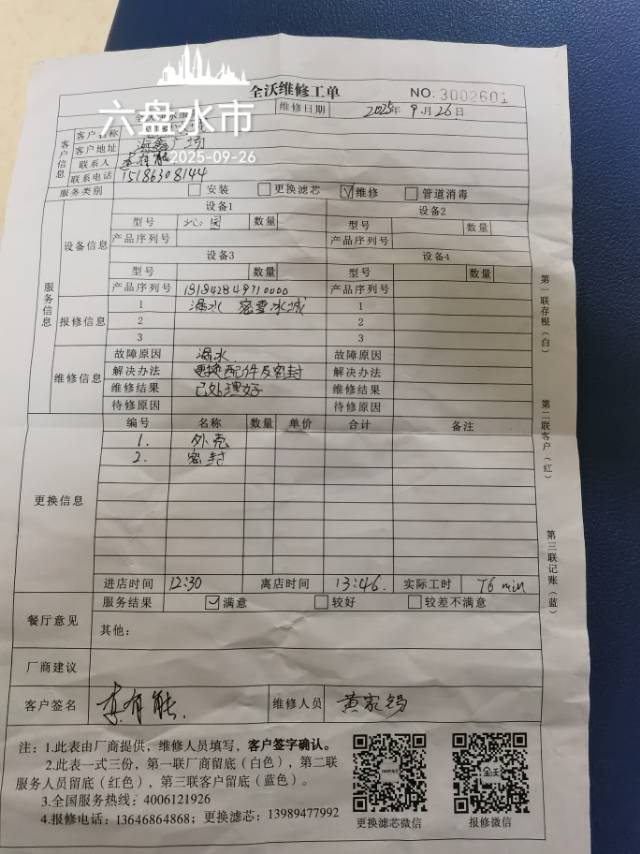 全沃维修工单
NO.3002601
六盘水市
2025-09-26
维修日期 2025年9月26日
客户信息
客户名称
客户地址
联系人 李有能
联系电话 15186308144
服务类别 安装 更换滤芯 ✓维修 管道消毒
服务信息
设备信息
设备1 设备2
型号 沁园 数量 型号 数量
产品序列号 产品序列号
设备3 设备4
型号 数量 型号 数量
产品序列号 131842849710000 产品序列号
报修信息
1 漏水 蜜雪冰城 1
2 2
3 3
维修信息
故障原因 漏水 故障原因
解决办法 更换配件及密封 解决办法
维修结果 已处理好 维修结果
待修原因 待修原因
更换信息
编号 名称 数量 单价 合计 备注
1. 外壳
2. 密封
进店时间 12:30 离店时间 13:46. 实际工时 76 min
餐厅意见
服务结果 ✓满意 较好 较差不满意
其他:
厂商建议
客户签名 李有能 维修人员
第一联存根(白)
第二联客户(红)
第三联记账(蓝)
注:1.此表由厂商提供,维修人员填写,客户签字确认。
2.此表一式三份,第一联厂商留底(白色),第二联
服务人员留底(红色),第三联客户留底(蓝色)。
3.全国服务热线:4006121926
4.报修电话:13646864868;更换滤芯:13989477992
更换滤芯微信
报修微信